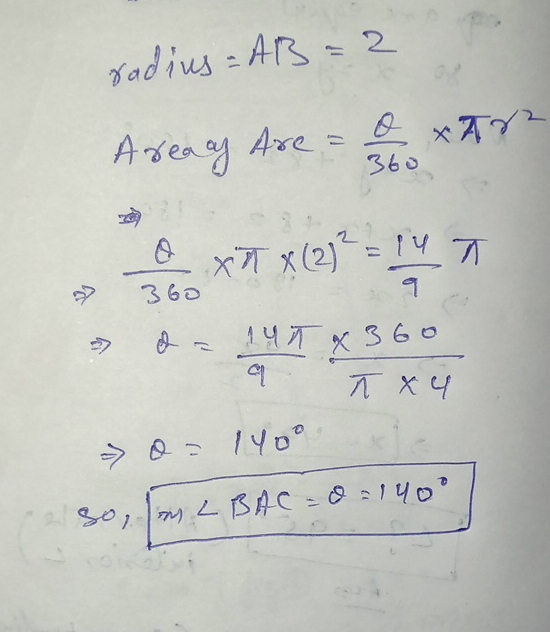 radius = AB = 2
Area of Arc = θ/360 × πr²
⇒ θ/360 × π × (2)² = 14/9 π
⇒ θ = 14π/9 × 360/π × 4
⇒ θ = 140°
so, m∠BAC = θ = 140°